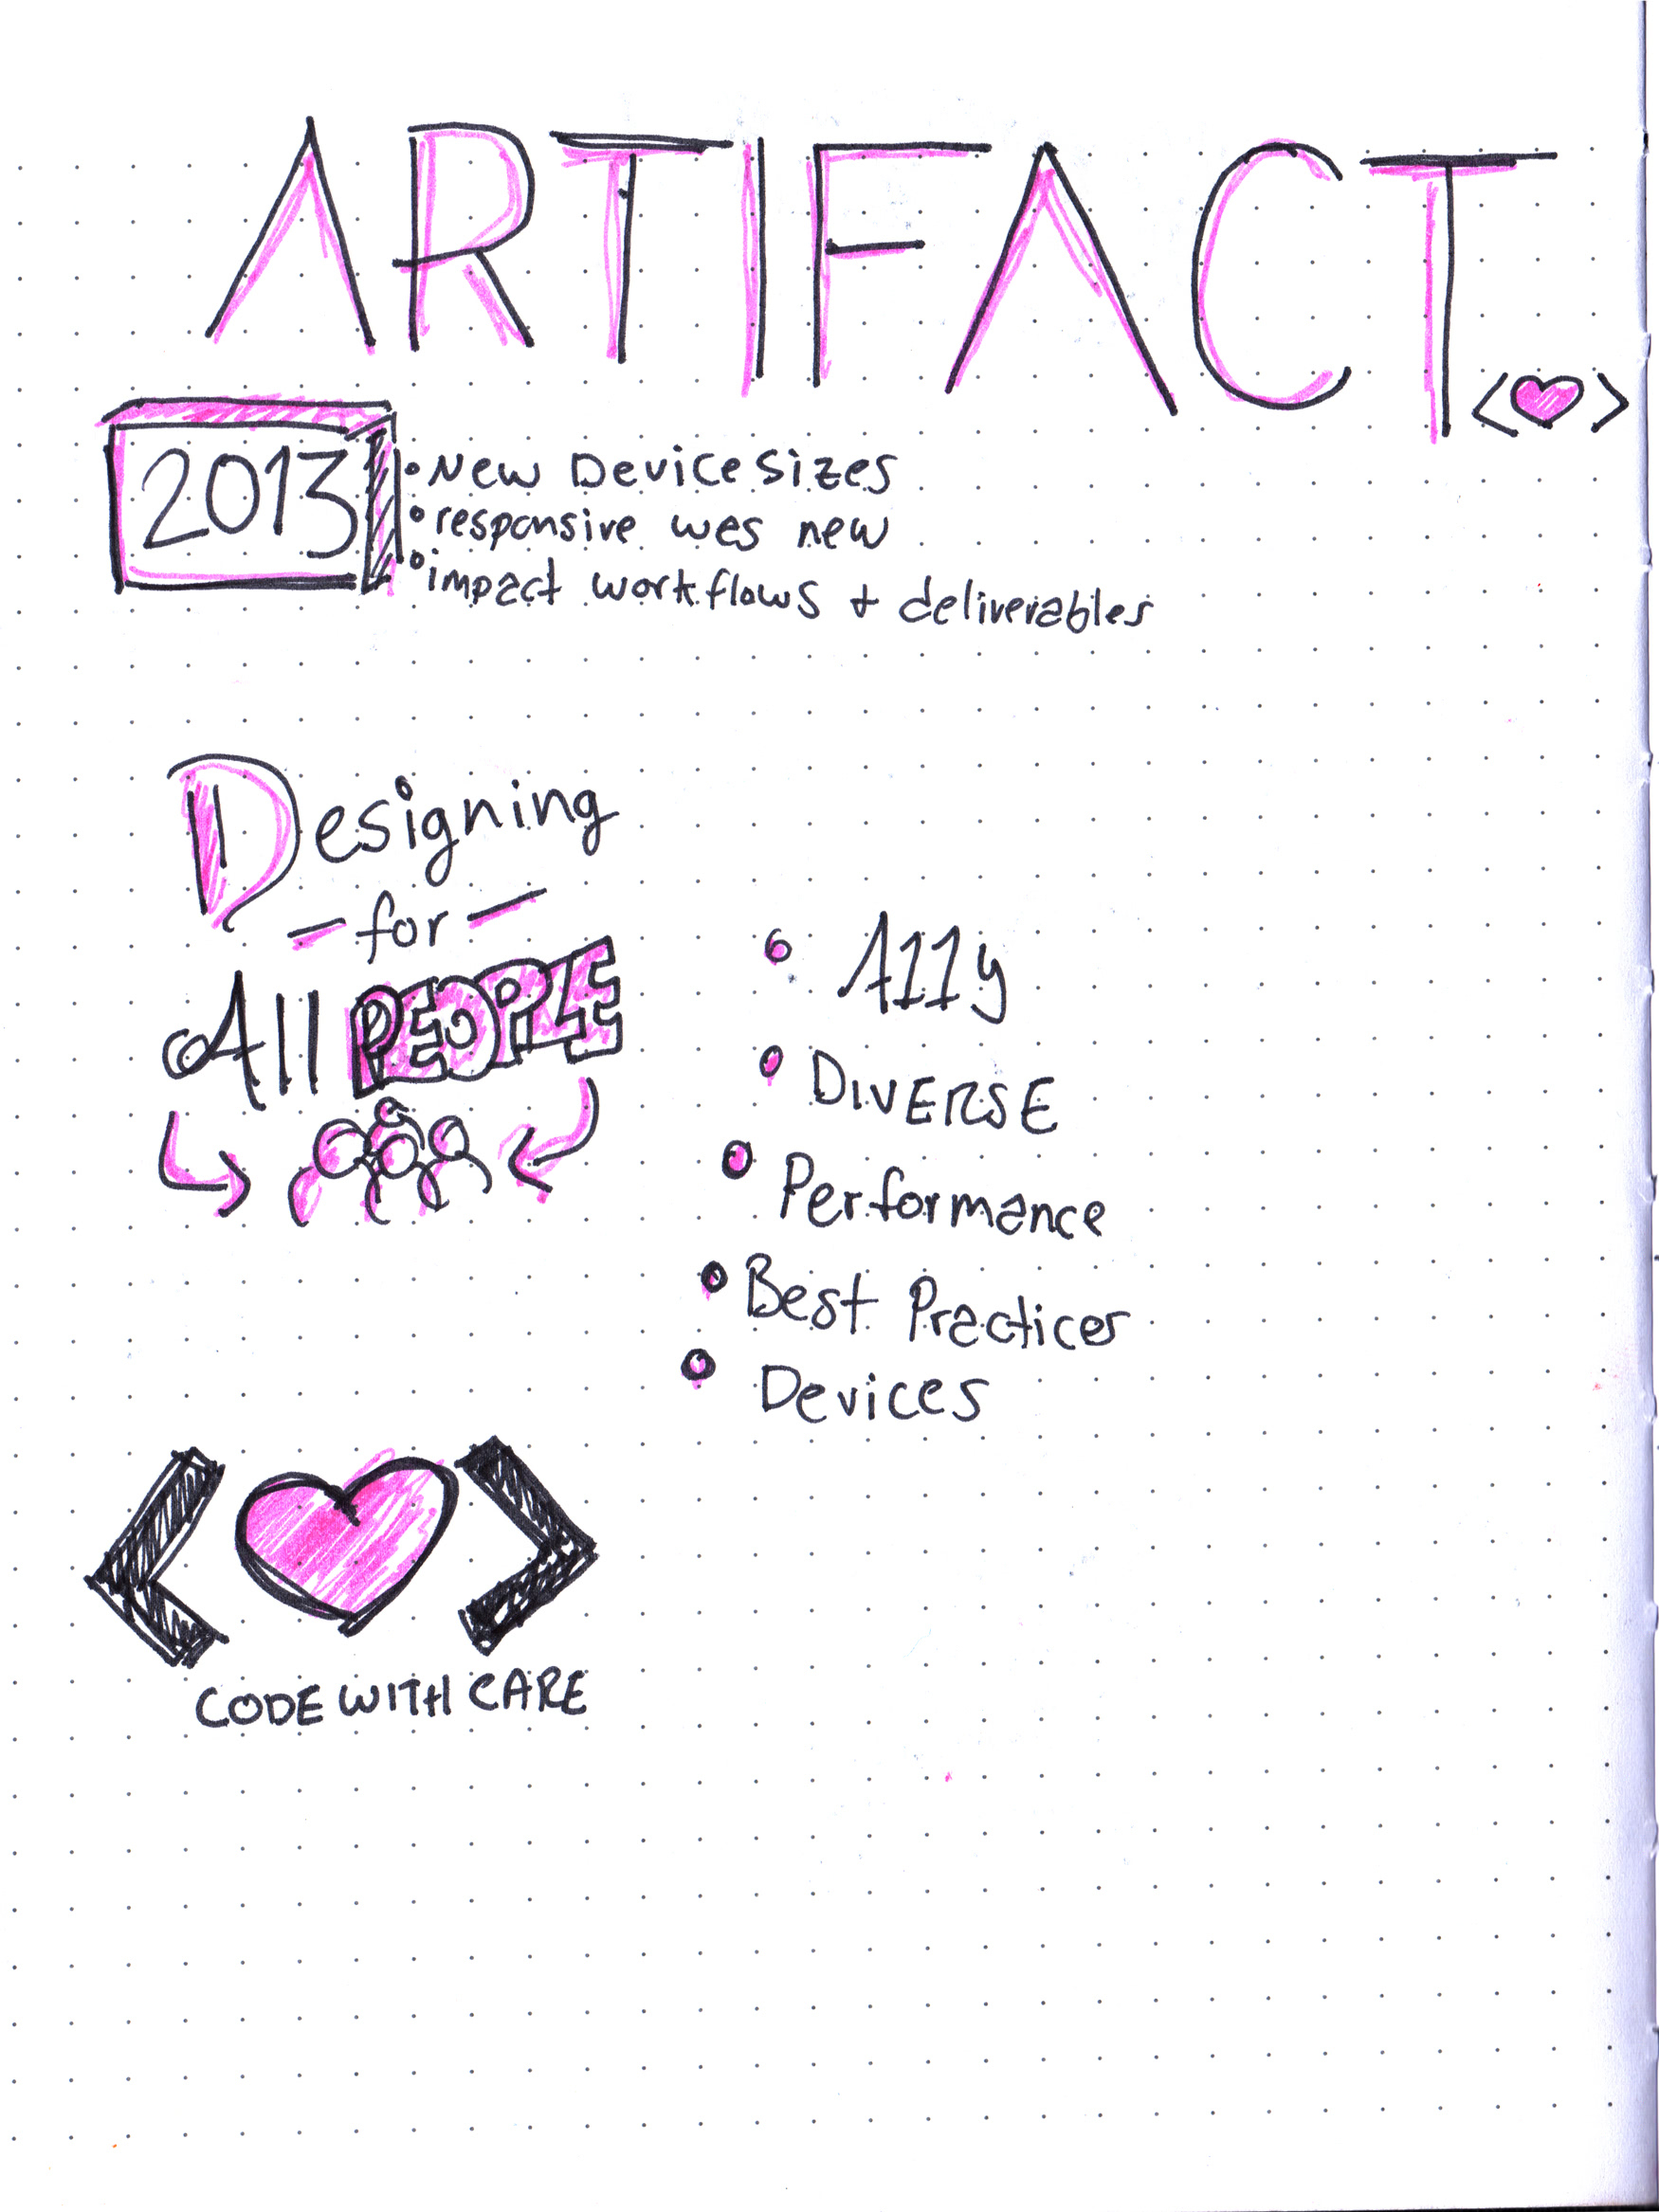 ARTIFACT
< >
2013
• New Device Sizes
• responsive wes new
• impact workflows + deliverables
Designing
- for -
All PEOPLE
• A11y
• DIVERSE
• Performance
• Best Practices
• Devices
< >
CODE WITH CARE